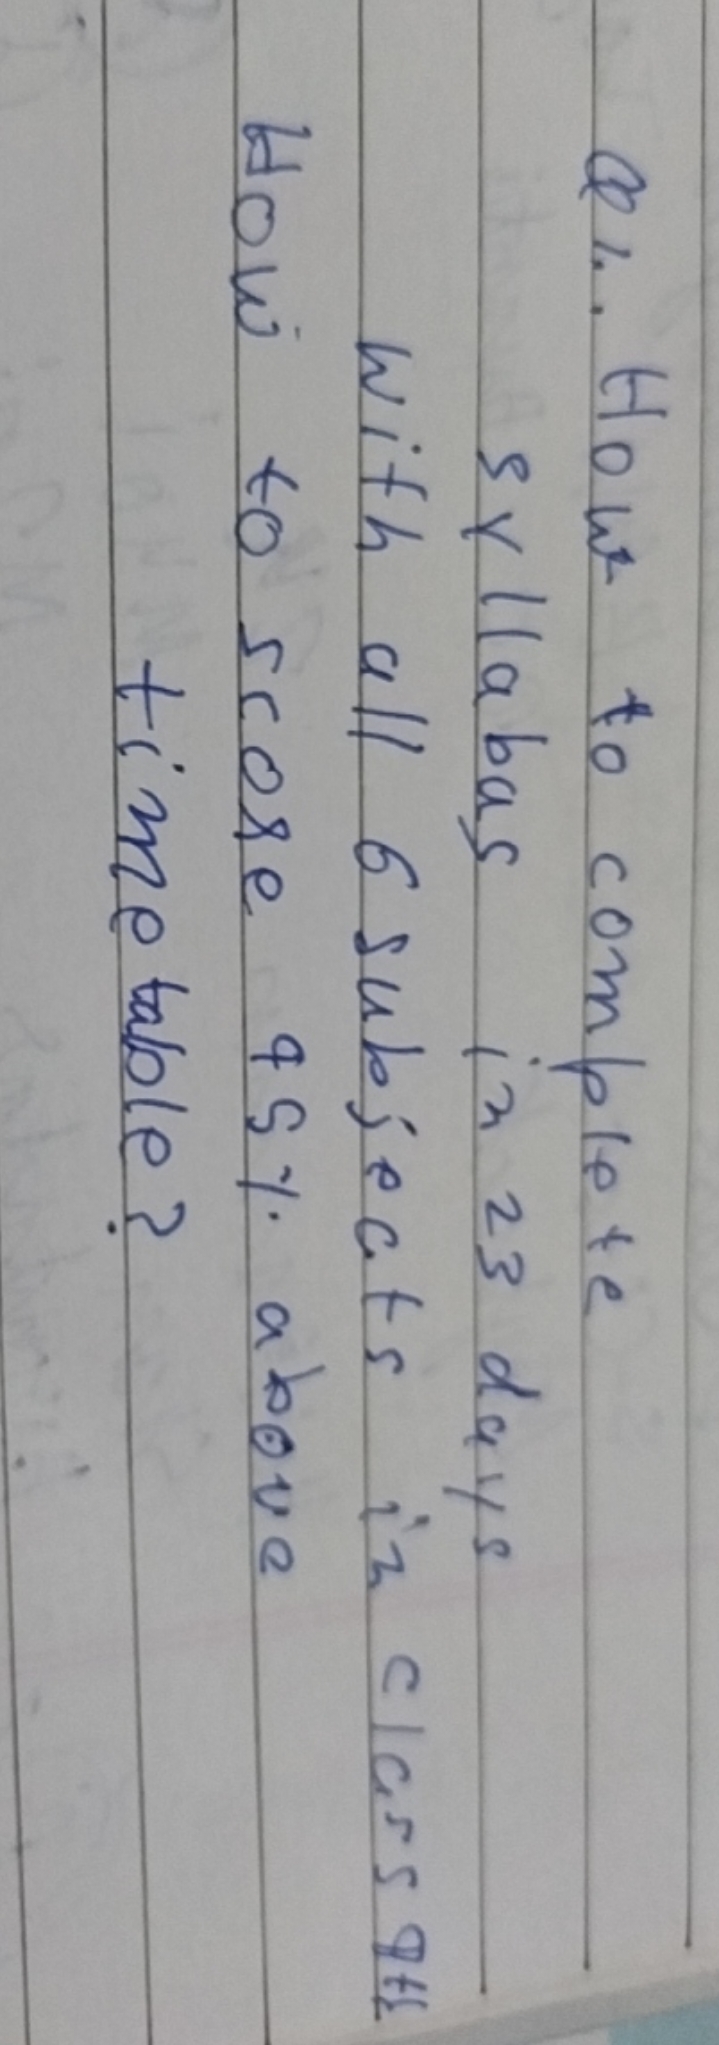 Q1. How to complete
syllabus in 23 days
with all 6 subjects in class 9th
How to score 95% above
timetable?